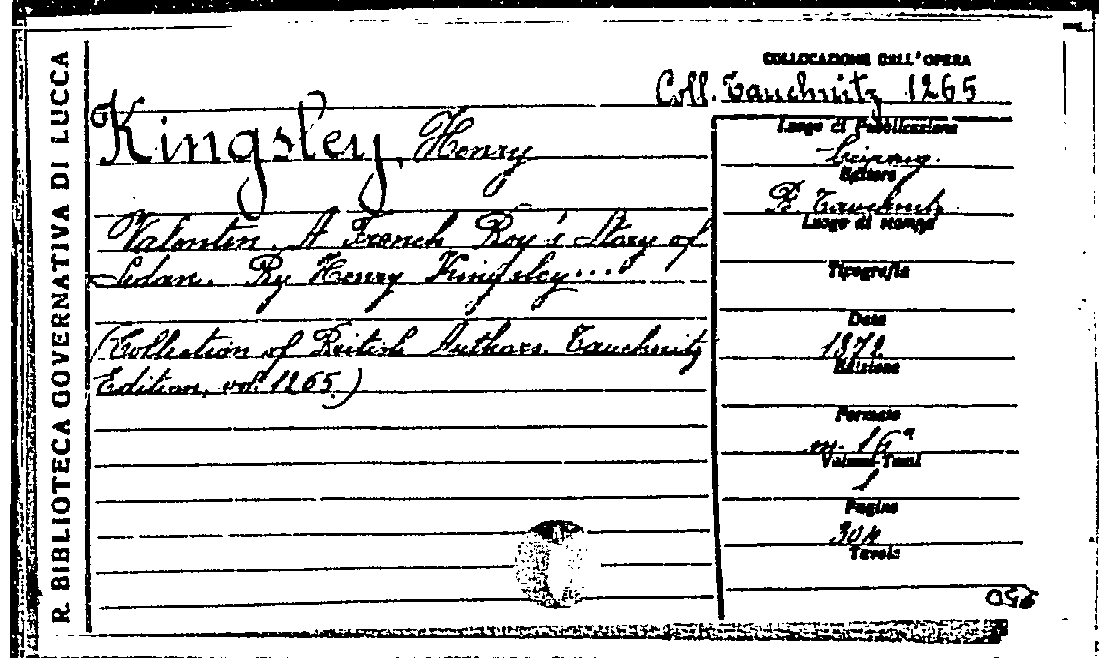 R. BIBLIOTECA GOVERNATIVA DI LUCCA
COLLOCAZIONE DELL'OPERA
Coll. Tauchnitz 1265
Kingsley, Henry
Valentin. A French Boy's Story of
Sedan. By Henry Kingsley....
(Collection of British Authors. Tauchnitz
Edition, vol. 1265.)
Luogo di Pubblicazione
Leipzig.
Editore
B. Tauchnitz
Luogo di stampa
Tipografia
Data
1872
Edizione
Formato
in-16°
Volumi-Tomi
1
Pagine
304
Tavole